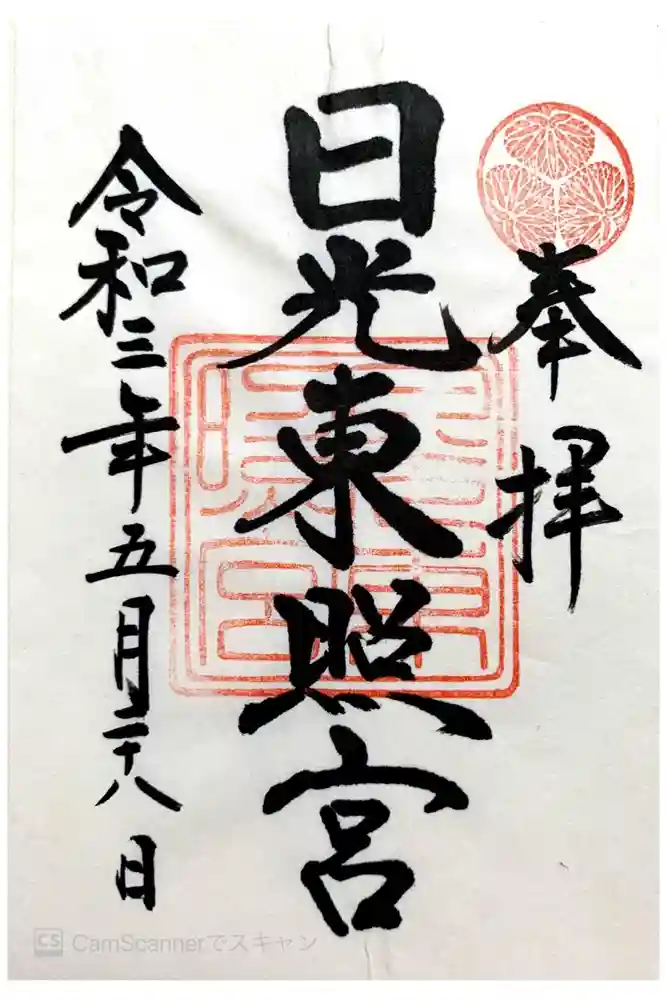 奉拝
日光東照宮
令和三年五月二十八日
CS CamScannerでスキャン